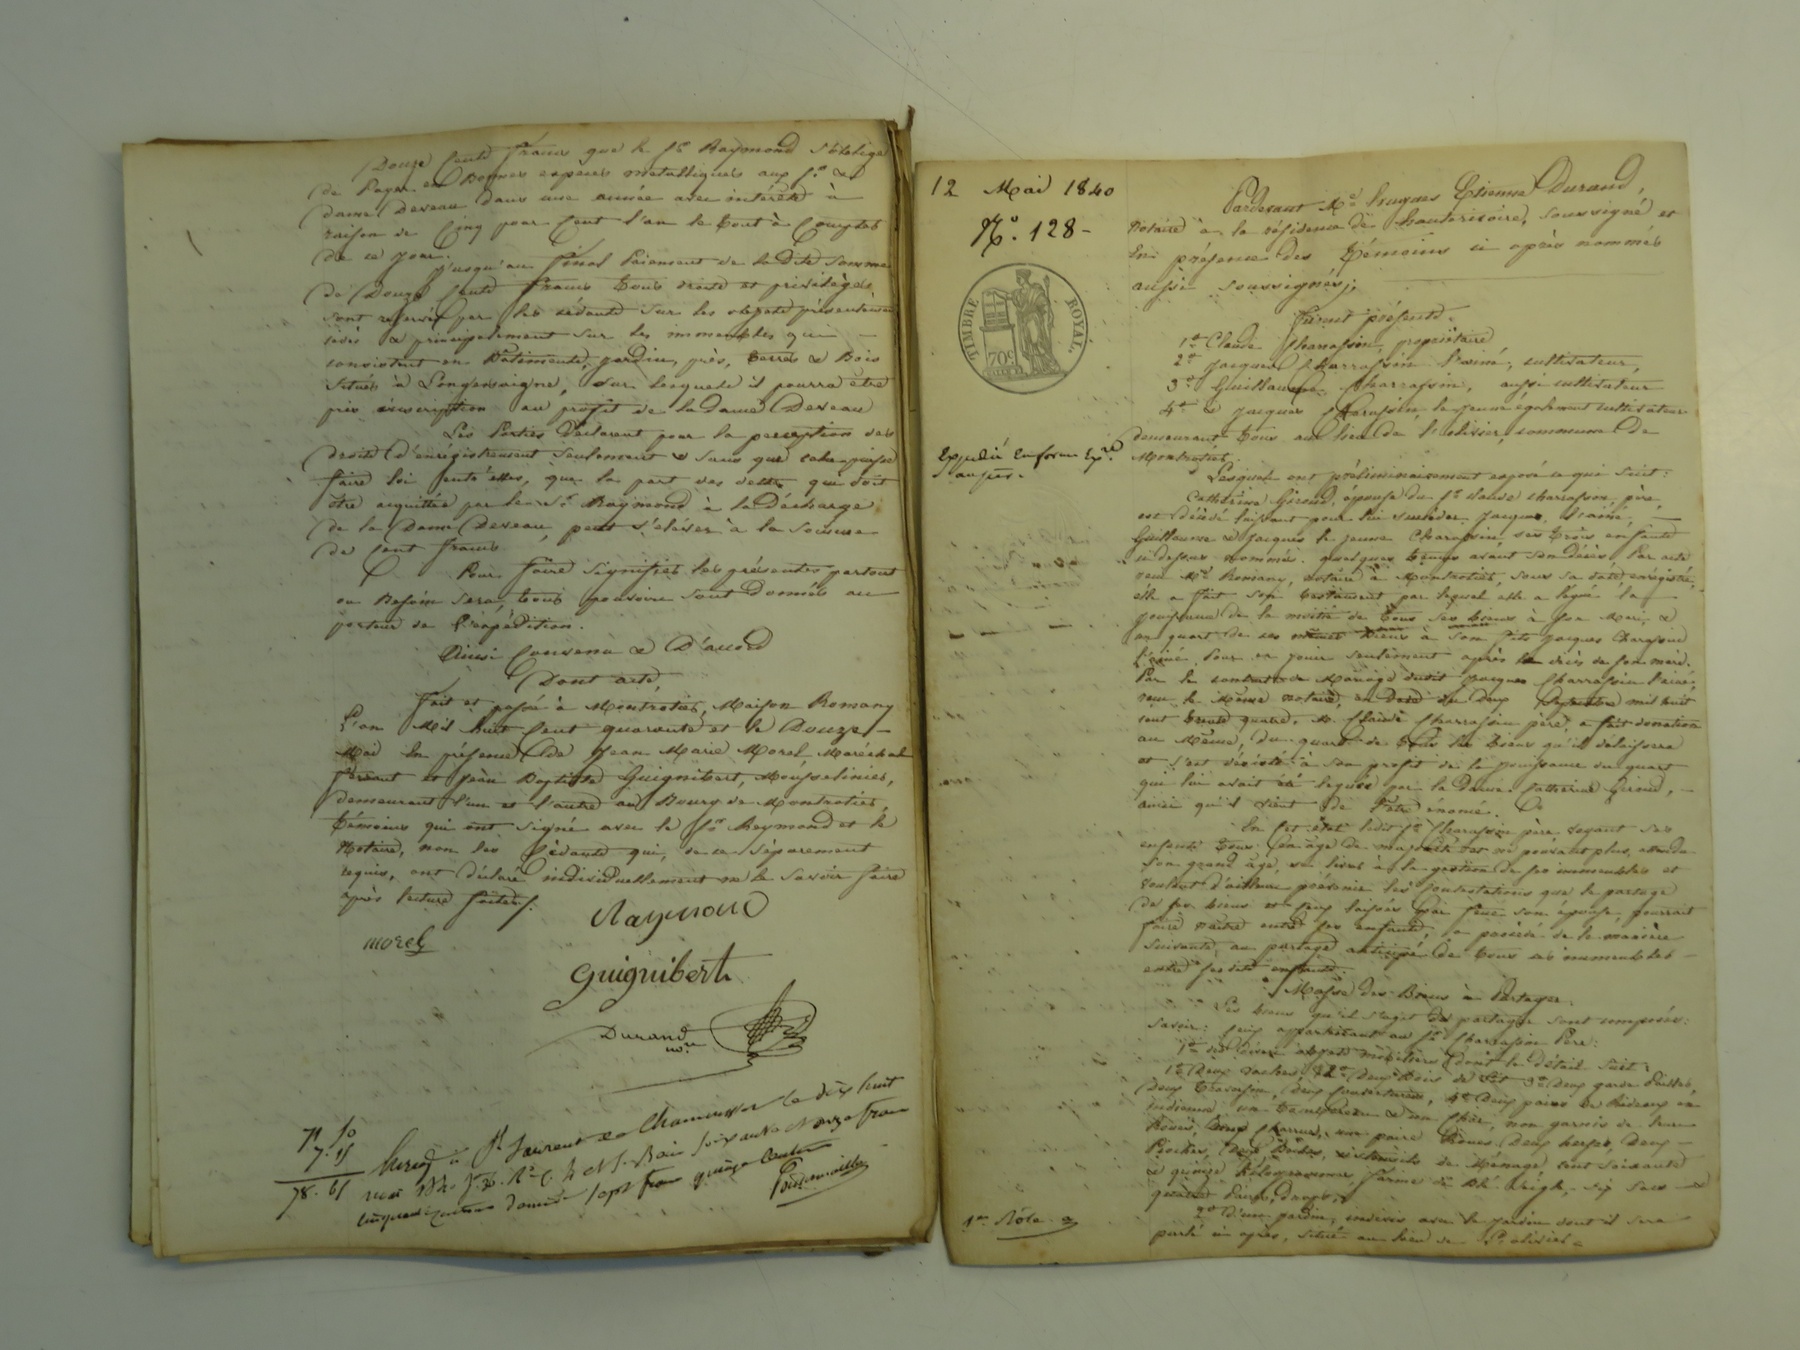 Douze Cents francs que le Sr. Raymond s'oblige
de Payer en Bonnes espèces métalliques aux Sr. &
dame Deveau dans une année avec intérêts à
raison de Cinq pour Cent l'an le tout à Compter
de ce jour.
Jusqu'au final paiement de ladite somme
de Douze Cents francs tous droits et privilèges
sont réservés par les cédants sur les objets présentement
cédés & principalement sur les immeubles qui
consistent en Bâtiments, jardin, près, terres & Bois
situés à Longessaigne, sur lesquels il pourra être
pris inscription au profit de la dame Deveau
Les Parties Déclarent pour la perception des
droits d'enregistrement seulement & sans que cela puisse
faire loi entr'elles, que la part des dettes qui doit
être acquittée par le Sr. Raymond à la décharge
de la Dame Deveau, peut s'élever à la somme
de Cent francs
Pour faire signifier les présentes partout
où Besoin sera, tous pouvoirs sont Donnés au
porteur de l'expédition.
Ainsi Convenu & D'accord
Dont acte,
Fait et passé à Montrotier, Maison Romany
L'an Mil huit Cent quarante et le Douze
Mai En présence de Jean Marie Morel, Maréchal
ferrant et Jean Baptiste Guignibert, Mousselinier,
demeurant l'un et l'autre au Bourg de Montrotier,
témoins qui ont signé avec le Sr. Reymond et le
Notaire, non les Cédants qui, de ce séparément
requis, ont déclaré individuellement ne le savoir faire
après lecture faite.
Raymond
morel
guignibert
Durand
nore
71. 50
7. 15
78. 65
Enreg. à St. Laurent de Chamousset le dix huit
mai 1840. Reçu soixante et onze francs
cinquante centimes dixième sept francs quinze centimes
12 Mai 1840
No. 128-
TIMBRE ROYAL.
70c
Expédié En forme
Pardevant Me. hugues Etienne Durand,
Notaire à la résidence de hauterivoire, soussigné et
En présence des témoins ci après nommés
aussi soussignés;
Furent présents.
1o. Claude Charrassin, propriétaire
2o. Jacques Charrassin l'ainé, cultivateur,
3o. Guillaume Charrassin, aussi cultivateur
4o. & Jacques Charassin le jeune également cultivateur
demeurant tous au lieu de l'olivier, commune de
Montrotier.
Lesquels ont préliminairement exposé ce qui suit:
Catherine Giroud, épouse du Sr. Claude Charrassin, père,
est décédé laissant pour lui succéder. Jacques, l'ainé,
Guillaume & Jacques le jeune Charrassin ses trois enfants
ci dessus nommés. quelques temps avant son décès, Par acte
reçu Me. Romany, notaire à Montrotier, sous sa date, enregistré,
elle a fait son testament par lequel elle a légué la
jouissance de la moitié de tous ses biens à son Mari, &
un quart de ses mêmes Biens à son fils Jacques Charassin
l'ainé, Pour en jouir seulement après le décès de son mari.
Par le contrat de Mariage dudit Jacques Charrassin l'ainé,
reçu le Même notaire, en Date du deux Septembre mil huit
cent trente quatre, M. Claude Charrassin père, a fait donation
au Même, du quart de tous les biens qu'il délaissera
et s'est désisté à son profit de la jouissance du quart
qui lui avait été léguée par la Dame Catherine Giroud,
ainsi qu'il vient de l'être énoncé.
En cet état ledit Sr. Charrassin père voyant ses
enfants tous en âge de majorité et ne pouvant plus, attendu
son grand âge, se livrer à la gestion de ses immeubles et
voulant d'ailleurs prévenir les contestations que le partage
de ses biens et ceux laissés par feue son épouse, pourrait
faire naître entre ses enfants, a procédé de la manière
suivante, au partage anticipé de tous ses immeubles
entre ses dits enfants.
Masse des Biens à Partager
Les biens qu'il s'agit de partager sont composés:
savoir: Ceux appartenant au Sr. Charrassin Père:
1o. des divers objets mobiliers dont le détail suit:
1o. Deux vaches, 2o. deux Bois de lit 3o. Deux garde Pailles,
Deux traversins, Deux Couvertures, 4o. Deux paires de Rideaux en
indienne, un tombereau & un Char, non garnis de leurs
Roues, Deux Charrues, une paire Roues, Deux herses, Deux
Pioches, Deux Bêches, ustensils de Ménage, cent soixante
& quinze Kilogrammes, farine de Blé Seigle, six sacs
quatre Draps,
2o. D'un jardin, indivis avec le jardin dont il sera
parlé ci après, situé au lieu de l'olivier
1er. Rôle